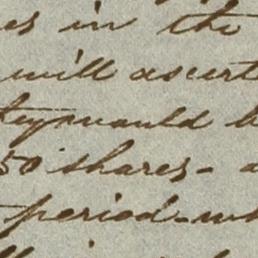 es in the
will ascert
would b
50 shares - a
period - wh